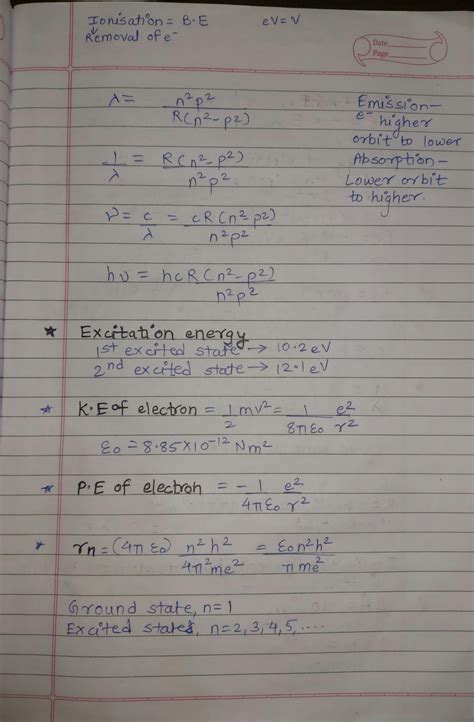 Ionisation = B.E eV = V
Removal of e⁻
Date
Page
λ = n²p² / R(n²-p²)
1/λ = R(n²-p²) / n²p²
ν = c/λ = cR(n²-p²) / n²p²
hν = hcR(n²-p²) / n²p²
Emission-
e⁻ higher
orbit to lower
Absorption-
Lower orbit
to higher.
★ Excitation energy
1st excited state → 10.2 eV
2nd excited state → 12.1 eV
★ K.E of electron = 1/2 mv² = 1/8πε₀ e²/r²
ε₀ = 8.85×10⁻¹² Nm²
★ P.E of electron = -1/4πε₀ e²/r²
★ rn = (4πε₀) n²h²/4π²me² = ε₀n²h²/πme²
Ground state, n=1
Excited states, n=2,3,4,5,....